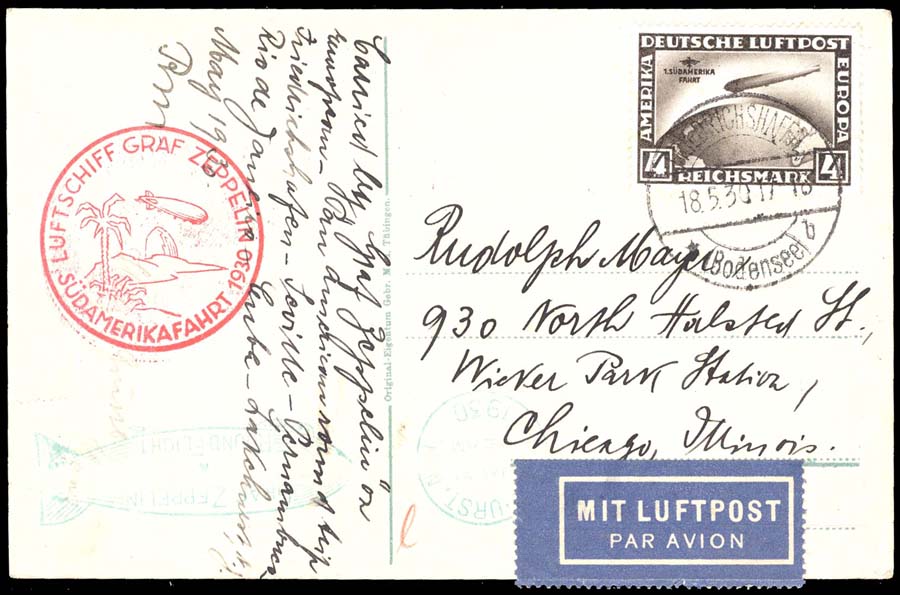 DEUTSCHE LUFTPOST
AMERIKA
EUROPA
1. SÜDAMERIKA
FAHRT
4 REICHSMARK 4
FRIEDRICHSHAFEN
18.5.30 17-18
b
(Bodensee)
LUFTSCHIFF GRAF ZEPPELIN
SÜDAMERIKAFAHRT 1930
Carried by Graf Zeppelin on
european-Pan american round trip
Friedrichshafen-Seville-Pernambuco
Rio de Janeiro Cuba-Lakehurst, N.J.
May 1930
Original-Eigentum Gebr. Metz, Tübingen.
Rudolph Mayer
930 North Halsted St.,
Wicker Park Station,
Chicago, Illinois.
1930
ROUND FLIGHT
GRAF ZEPPELIN
MIT LUFTPOST
PAR AVION